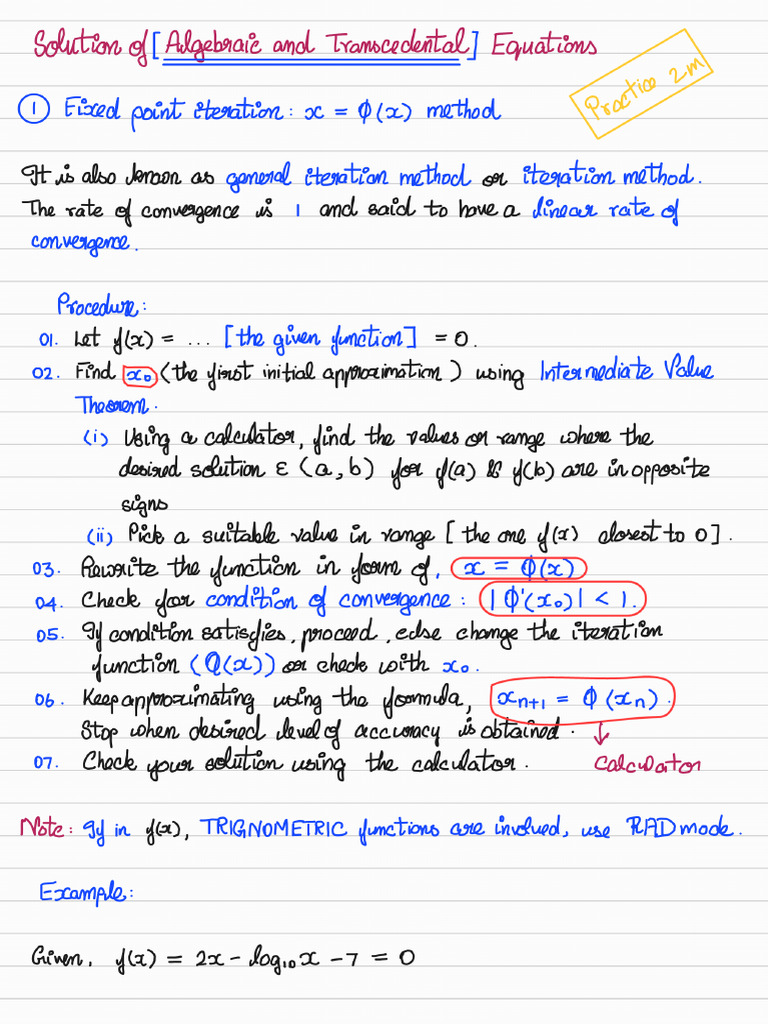 Solution of [Algebraic and Transcedental] Equations
Practice 2m
① Fixed point iteration: x = ϕ(x) method
It is also known as general iteration method or iteration method.
The rate of convergence is 1 and said to have a linear rate of
convergence.
Procedure:
01. Let f(x) = ... [the given function] = 0.
02. Find x₀ (the first initial approximation) using Intermediate Value
Theorem.
(i) Using a calculator, find the values or range where the
desired solution ε (a, b) for f(a) & f(b) are in opposite
signs
(ii) Pick a suitable value in range [the one f(x) closest to 0].
03. Rewrite the function in form of, x = ϕ(x)
04. Check for condition of convergence: |ϕ'(x₀)| < 1.
05. If condition satisfies, proceed, else change the iteration
function (Q(x)) or check with x₀.
06. Keep approximating using the formula, xₙ₊₁ = ϕ(xₙ).
Stop when desired level of accuracy is obtained. ↓
07. Check your solution using the calculator. Calculator
Note: If in f(x), TRIGNOMETRIC functions are involved, use RAD mode.
Example:
Given, f(x) = 2x - log₁₀x - 7 = 0